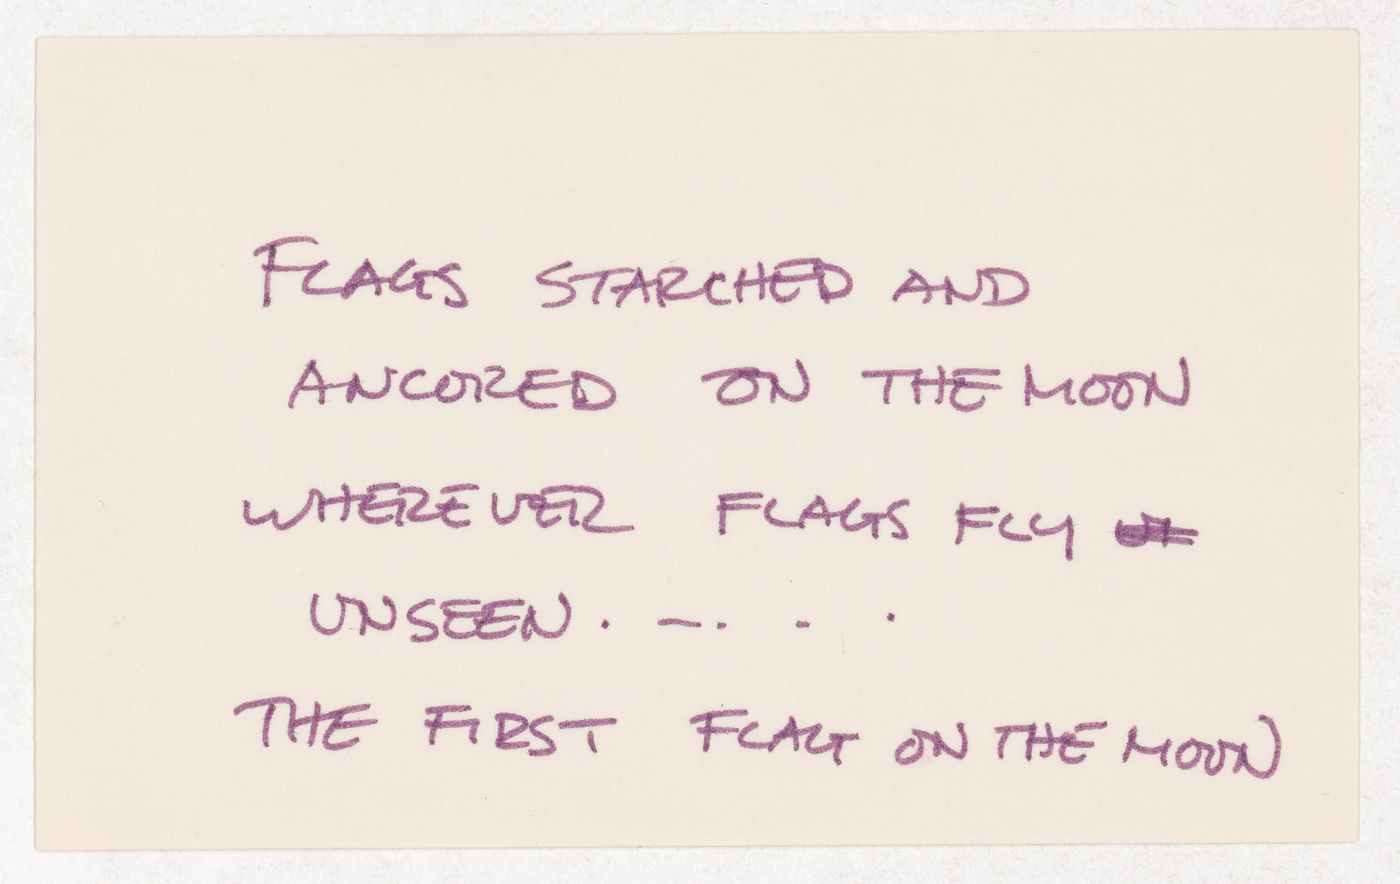 FLAGS STARCHED AND
ANCORED ON THE MOON
WHEREVER FLAGS FLY
UNSEEN. —. . .
THE FIRST FLAG ON THE MOON